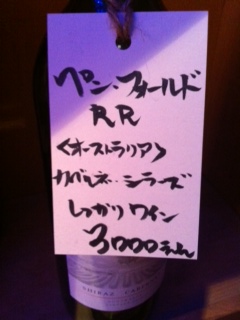 ペン・フォールド
RR
<オーストラリア>
カバルネ・シラーズ
しっかりワイン
3000
SHIRAZ